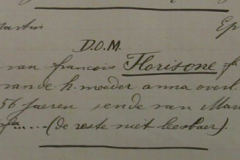 Ep
D.O.M.
van francois Florisone
vande h. moeder anna overl
56 jaeren ende van Mar
..... (de reste niet leesbaer).